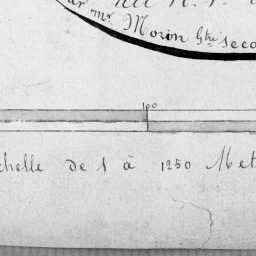 par mr. Morin Gtre seco
100
chelle de 1 à 1250 Met